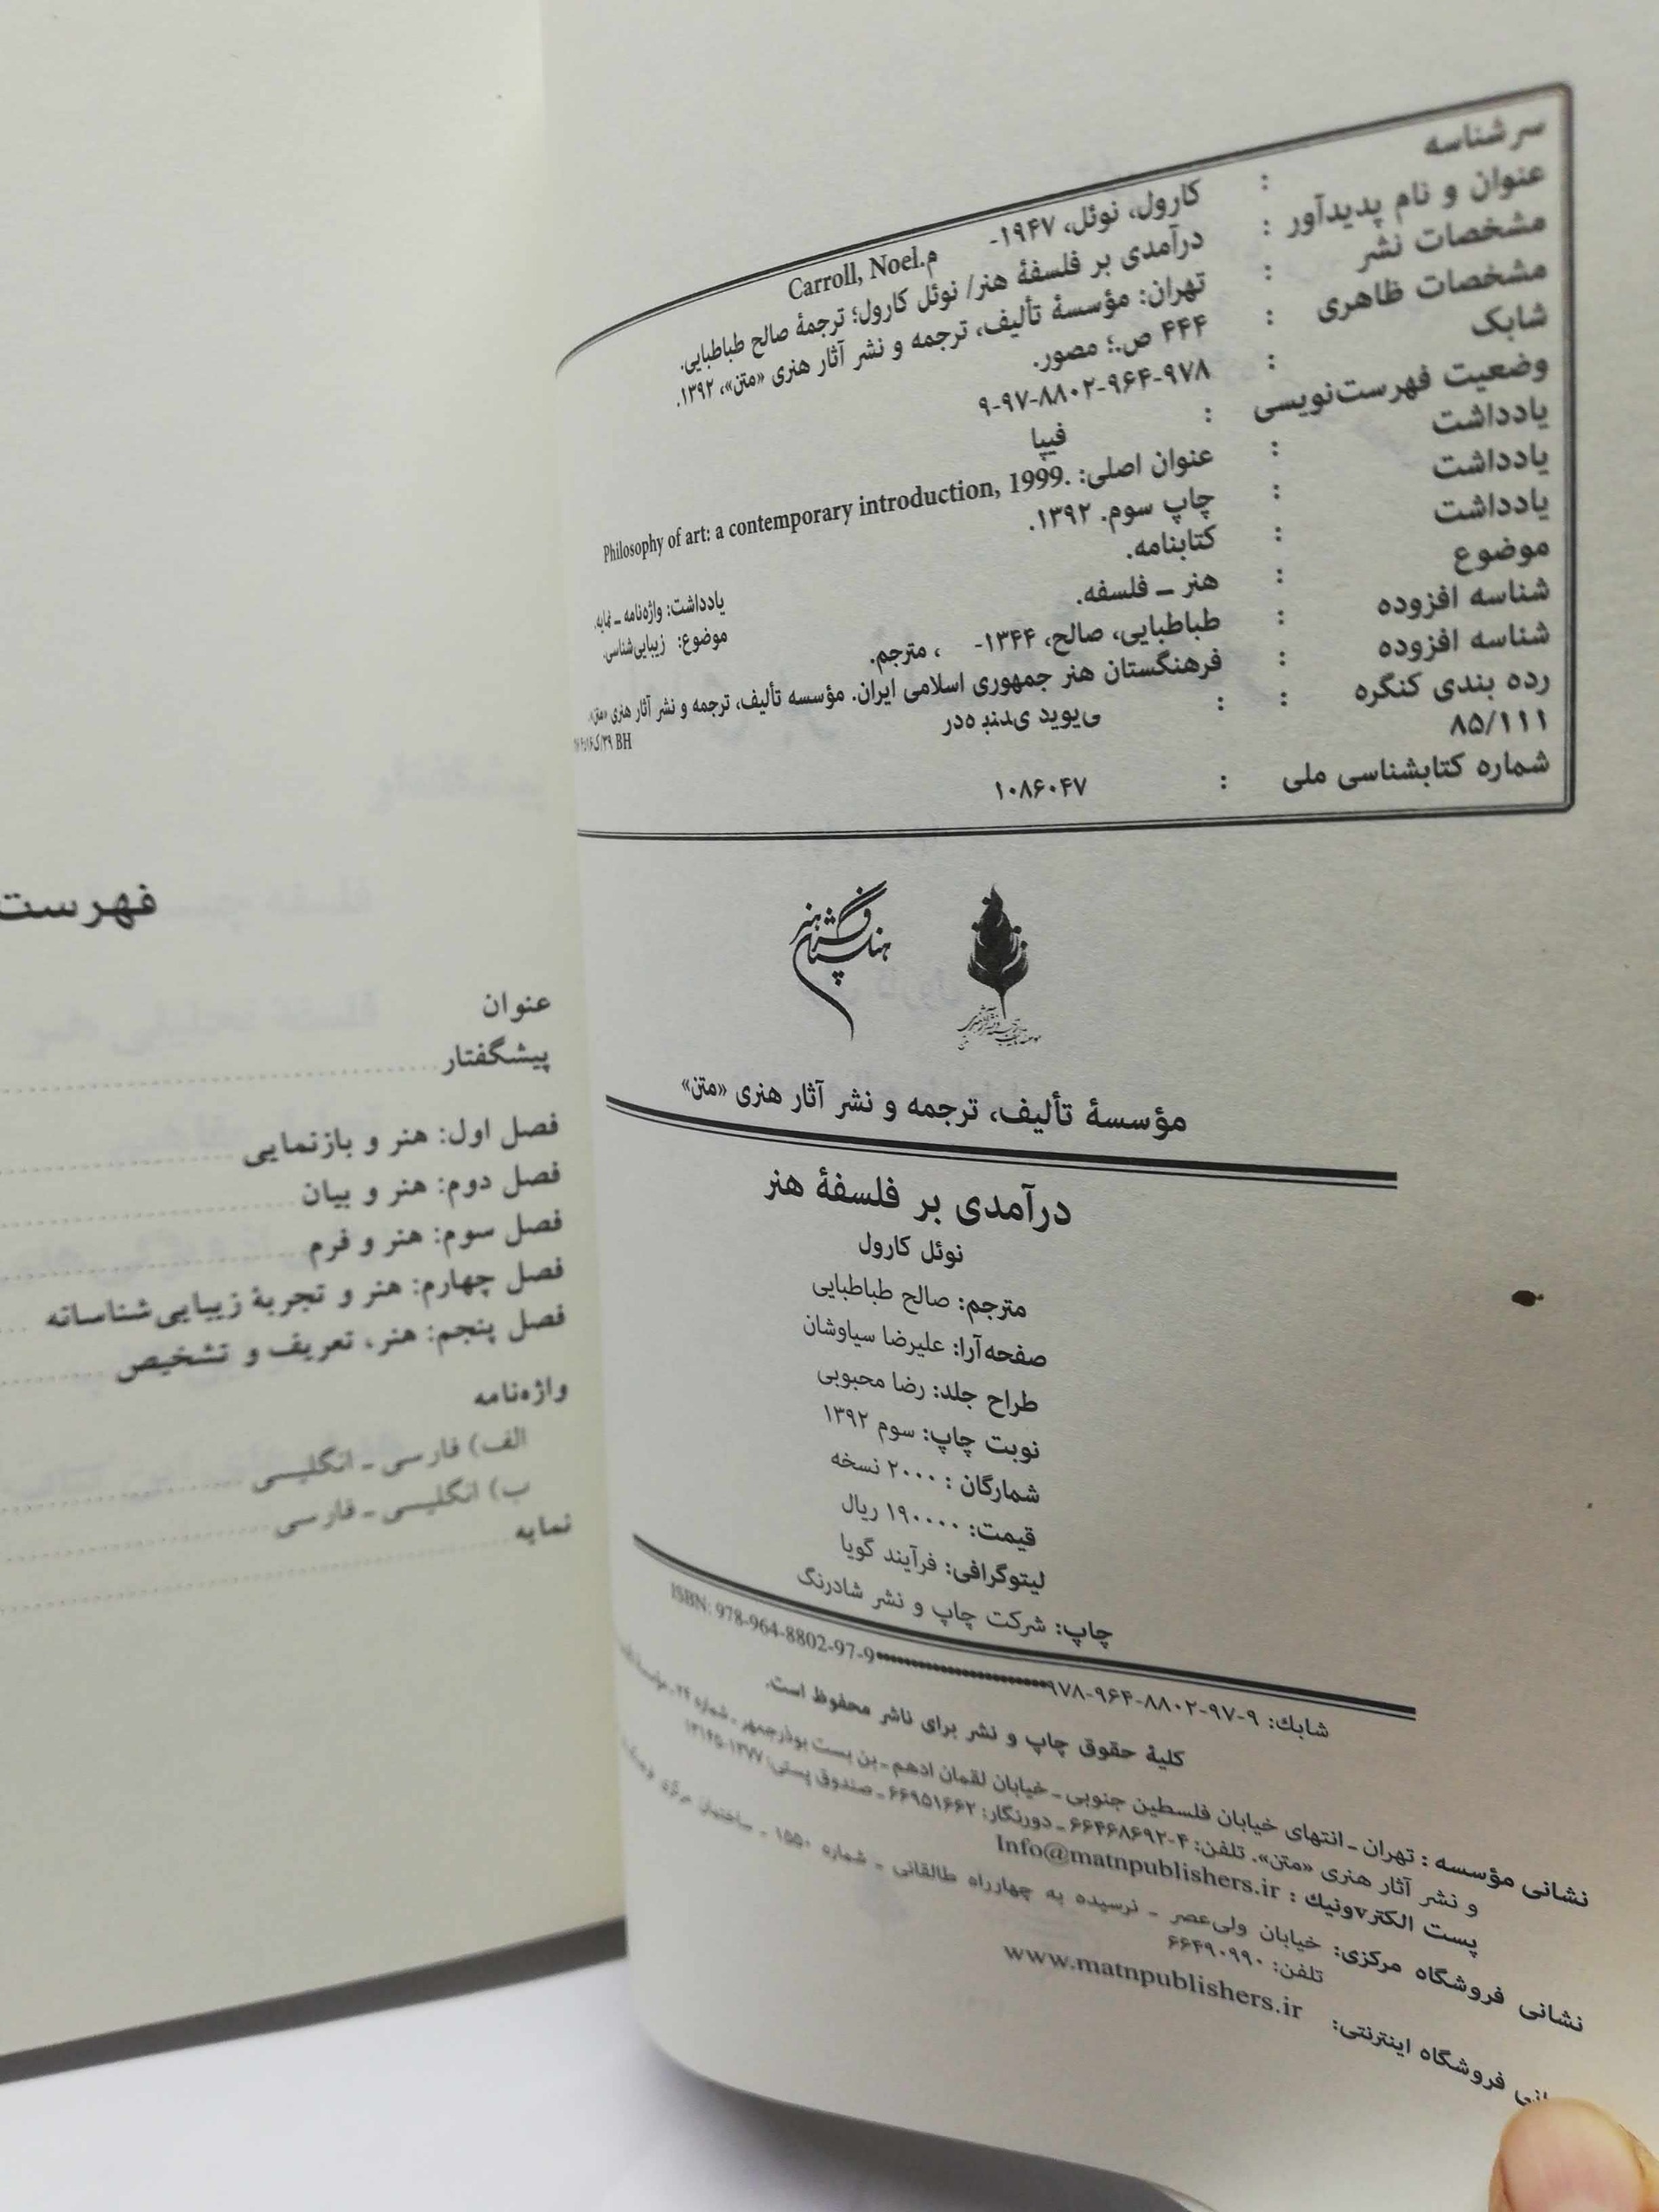 سرشناسه : کارول، نوئل، ۱۹۴۷- م.Carroll, Noel
عنوان و نام پدیدآور : درآمدی بر فلسفهٔ هنر/ نوئل کارول؛ ترجمهٔ صالح طباطبایی.
مشخصات نشر : تهران: مؤسسهٔ تألیف، ترجمه و نشر آثار هنری «متن»، ۱۳۹۲.
مشخصات ظاهری : ۴۴۴ ص.؛ مصور.
شابک : ۹-۹۷-۸۸۰۲-۹۶۴-۹۷۸
وضعیت فهرست‌نویسی : فیپا
یادداشت : عنوان اصلی: Philosophy of art: a contemporary introduction, 1999.
یادداشت : چاپ سوم. ۱۳۹۲.
یادداشت : کتابنامه. یادداشت: واژه‌نامه ـ نمایه.
موضوع : هنر ــ فلسفه. موضوع: زیبایی‌شناسی.
شناسه افزوده : طباطبایی، صالح، ۱۳۴۴- ، مترجم.
شناسه افزوده : فرهنگستان هنر جمهوری اسلامی ایران. مؤسسه تألیف، ترجمه و نشر آثار هنری «متن».
رده بندی کنگره : BH ۳۹/
۸۵/۱۱۱ : ی‌یوید ی‌دنبه‌در
شماره کتابشناسی ملی : ۱۰۸۶۰۴۷
فرهنگستان هنر
مؤسسهٔ تألیف، ترجمه و نشر آثار هنری «متن»
درآمدی بر فلسفهٔ هنر
نوئل کارول
مترجم: صالح طباطبایی
صفحه‌آرا: علیرضا سیاوشان
طراح جلد: رضا محبوبی
نوبت چاپ: سوم ۱۳۹۲
شمارگان : ۲۰۰۰ نسخه
قیمت: ۱۹۰۰۰۰ ریال
لیتوگرافی: فرآیند گویا
چاپ: شرکت چاپ و نشر شادرنگ
شابك: ۹-۹۷-۸۸۰۲-۹۶۴-۹۷۸ ISBN: 978-964-8802-97-9
کلیهٔ حقوق چاپ و نشر برای ناشر محفوظ است.
نشانی مؤسسه : تهران ـ انتهای خیابان فلسطین جنوبی ـ خیابان لقمان ادهم ـ بن بست بوذرجمهر ـ شماره ۲۴ ـ مؤسسهٔ
و نشر آثار هنری «متن». تلفن: ۴-۶۶۴۶۸۶۹۲ ـ دورنگار: ۶۶۹۵۱۶۶۲ ـ صندوق پستی: ۱۳۷۷-۱۳۱۴۵
پست الکترvونیك : Info@matnpublishers.ir
نشانی فروشگاه مرکزی: خیابان ولی‌عصر ـ نرسیده به چهارراه طالقانی ـ شماره ۱۵۵۰ ـ ساختمان مرکزی
تلفن: ۶۶۴۹۰۹۹۰
فروشگاه اینترنتی: www.matnpublishers.ir
فهرست
عنوان
پیشگفتار
فصل اول: هنر و بازنمایی
فصل دوم: هنر و بیان
فصل سوم: هنر و فرم
فصل چهارم: هنر و تجربهٔ زیبایی‌شناسانه
فصل پنجم: هنر، تعریف و تشخیص
واژه‌نامه
الف) فارسی ـ انگلیسی
ب) انگلیسی ـ فارسی
نمایه